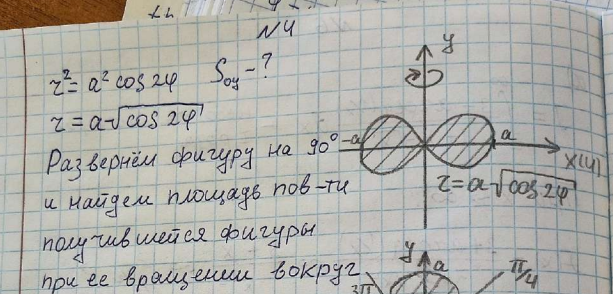 №4
r² = a² cos 2φ   S_oy - ?
r = a√cos 2φ
Развернём фигуру на 90°
и найдем площадь пов-ти
получившейся фигуры
при ее вращении вокруг
y
-a a
x(u)
r = a√cos 2φ
y a π/4
3π